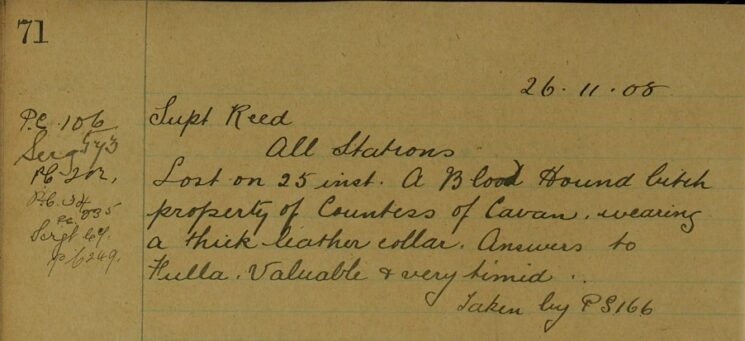 71
26. 11. 08
P.C. 106
Supt Reed
Sergt 573
All Stations
P.C. 202.
Lost on 25 inst. A Blood Hound bitch
P.C. 34
property of Countess of Cavan. wearing
a thick leather collar. Answers to
Sergt 64.
Hulla. Valuable & very timid..
Taken by PS166